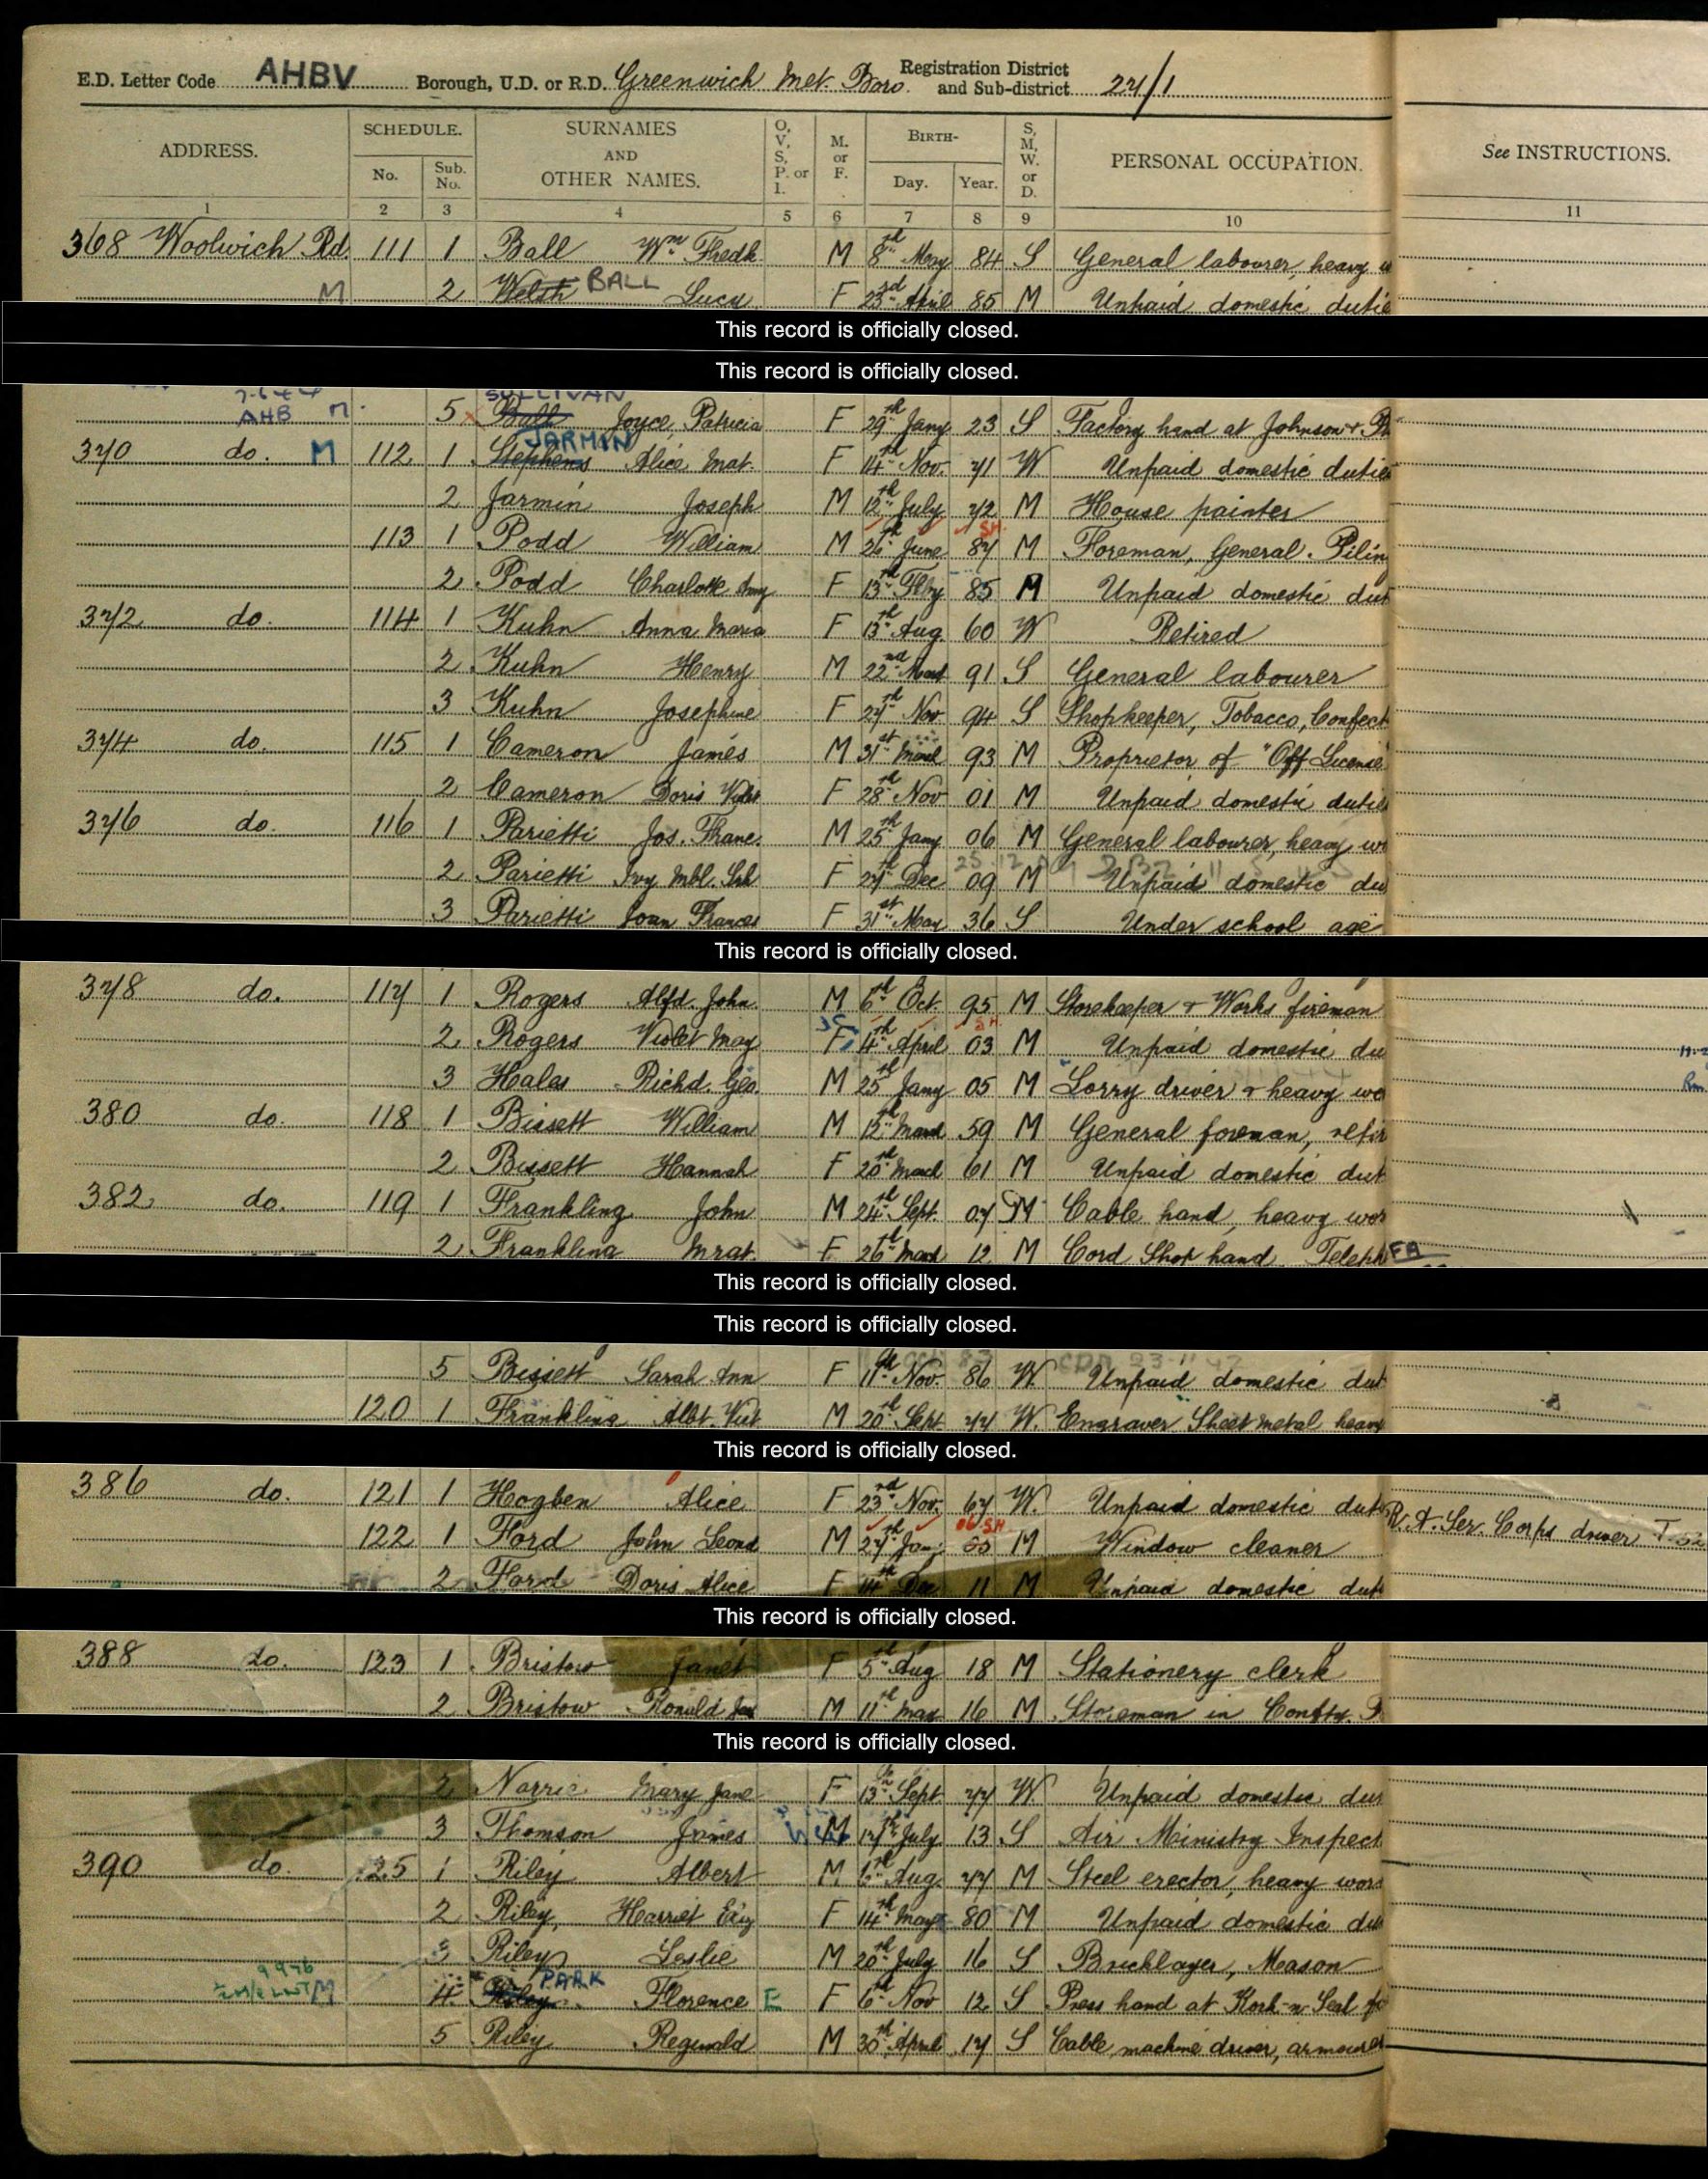 E.D. Letter Code AHBV Borough, U.D. or R.D. Greenwich Met. Boro. Registration District and Sub-district 27/1
ADDRESS. SCHEDULE. No. Sub. No. SURNAMES AND OTHER NAMES. O, V, S, P. or I. M. or F. BIRTH- Day. Year. S, M, W. or D. PERSONAL OCCUPATION. See INSTRUCTIONS.
1 2 3 4 5 6 7 8 9 10 11
368 Woolwich Rd. 111 1 Ball Wm Fredk. M 8th May 84 S General labourer, heavy w
M 2 Welsh BALL Lucy F 23rd April 85 M Unpaid domestic dutie
This record is officially closed.
This record is officially closed.
AHB M. 5 Ball SULLIVAN Joyce, Patricia F 29th Jany 23 S Factory hand at Johnson & Ph
370 do. M 112 1 Stephens JARMIN Alice Mat. F 14th Nov. 71 W Unpaid domestic dutie
2 Jarmin Joseph M 12th July 72 M House painter
113 1 Podd William M 26th June 87 SH. M Foreman, General. Pilin
2 Podd Charlotte Amy F 13th Feby 85 M Unpaid domestic dut
372 do. 114 1 Kuhn Anna Maria F 13th Aug. 60 W Retired
2 Kuhn Henry M 22nd March 91 S General labourer
3 Kuhn Josephine F 27th Nov. 94 S Shopkeeper, Tobacco, Confect
374 do. 115 1 Cameron James M 31st March 93 M Proprietor of "Off License"
2 Cameron Doris Violet F 28th Nov 01 M Unpaid domestic dutie
376 do. 116 1 Parietti Jos. Franc. M 25th Jany 06 M General labourer, heavy wo
2 Parietti Ivy Mbl. F 27th Dec 09 M Unpaid domestic du
3 Parietti Joan Frances F 31st May 36 S Under school age
This record is officially closed.
378 do. 117 1 Rogers Alfd. John. M 6th Oct. 95 M Storekeeper & Works fireman
2 Rogers Violet May F 4th April 03 SH. M Unpaid domestic du
3 Hales Richd. Geo. M 25th Jany 05 M Lorry driver & heavy wo
380 do. 118 1 Bissett William M 12th March 59 M General foreman, retir
2 Bissett Hannah F 20th March 61 M Unpaid domestic dut
382 do. 119 1 Frankling John M 24th Sept. 07 M Cable hand, heavy wor
2 Frankling Mrgt. F 26th March 12 M Cord Shop hand. Teleph FB
This record is officially closed.
This record is officially closed.
5 Bissett Sarah Ann F 11th Nov. 86 W. Unpaid domestic dut
120 1 Frankling Albt. Vict M 20th Sept 77 W. Engraver Sheet metal heavy
This record is officially closed.
386 do. 121 1 Hogben Alice F 23rd Nov. 67 W. Unpaid domestic dut
122 1 Ford John Leond M 27th Jan: 05 06 SH M Window cleaner R.A. Ser. Corps driver T-52
2 Ford Doris Alice F 14th Dec 11 M Unpaid domestic dut
This record is officially closed.
388 do. 123 1 Bristow Janet F 5th Aug 18 M Stationery clerk
2 Bristow Ronald Jas M 11th May 16 M Storeman in
This record is officially closed.
2 Norrie Mary Jane F 13th Sept 77 W Unpaid domestic dut
3 Thomson James M 17th July 13 S Air Ministry Inspect
390 do. 125 1 Riley Albert M 6th Aug. 77 M Steel erector, heavy work
2 Riley, Harriet Eliz F 14th May 80 M Unpaid domestic du
3 Riley Leslie M 20th July 16 S Bricklayer, Mason
M 4 Riley PARK Florence E F 6th Nov 12 S Press hand at Kork-n-Seal
5 Riley Reginald M 30th April 17 S Cable machine driver, armourer